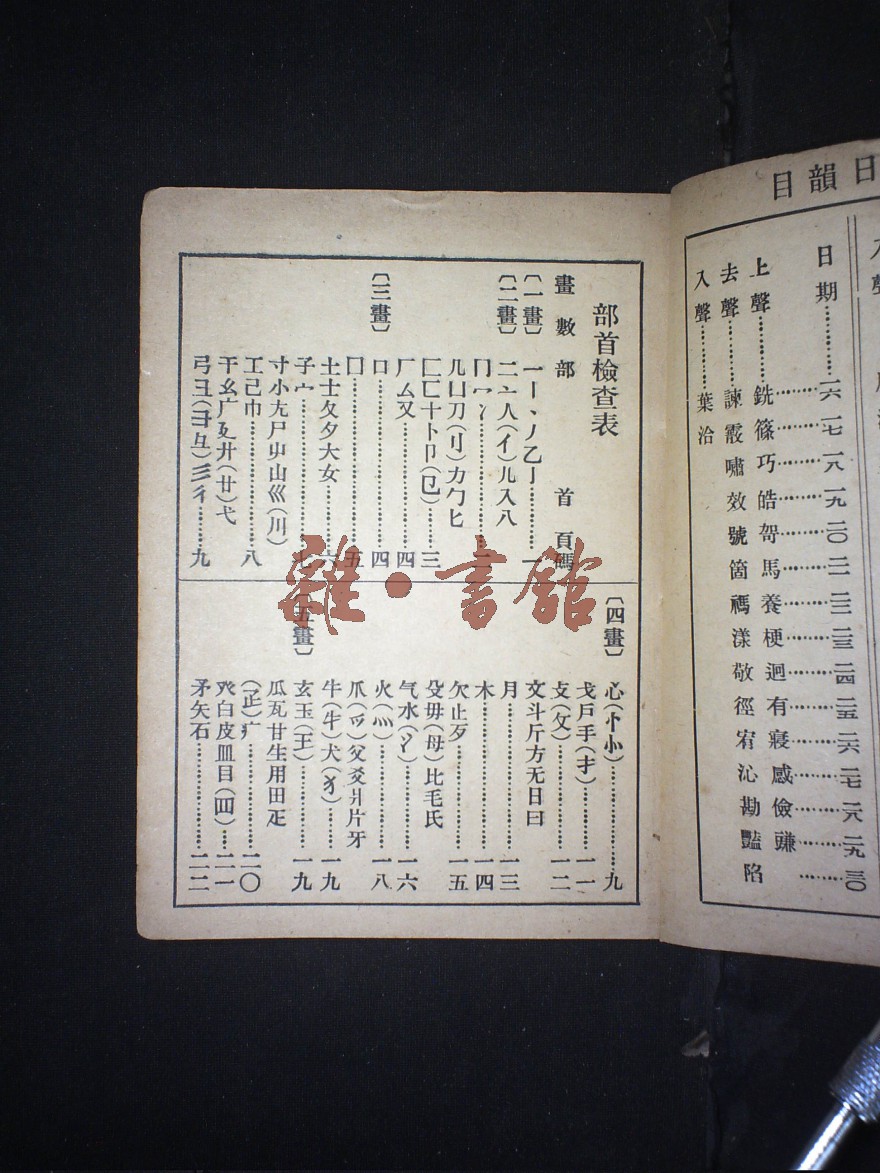 日韻目
日期……一六 一七 一八 一九 二〇 二一 二二 二三 二四 二五 二六 二七 二八 二九 三〇
上聲……銑 篠 巧 皓 哿 馬 養 梗 迥 有 寢 感 儉 豏
去聲……諫 霰 嘯 效 號 箇 禡 漾 敬 徑 宥 沁 勘 豔 陷
入聲……葉 洽
部首檢查表
畫數部 首 頁碼
〔一畫〕 一丨丶丿乙亅……一
〔二畫〕 二亠人(亻)儿入八
冂冖冫……二
几凵刀(刂)力勹匕
匚匸十卜卩(㔾)……三
厂厶又……四
〔三畫〕 口……四
囗……五
土士夂夊夕大女……六
子宀……七
寸小尢尸屮山巛(川)
工己巾……八
干幺广廴廾(廿)弋
弓彐(彑)彡彳……九
〔四畫〕
心(忄㣺)……九
戈戶手(扌)……一一
攴(攵)……一二
文斗斤方无日曰
月……一三
木……一四
欠止歹……一五
殳毋(母)比毛氏
气水(氵)……一六
火(灬)……一八
爪(爫)父爻爿片牙
牛(牜)犬(犭)……一九
〔五畫〕
玄玉(王)……一九
瓜瓦甘生用田疋
(𤴔)疒……二〇
癶白皮皿目(罒)……二一
矛矢石……二二
雜·書館